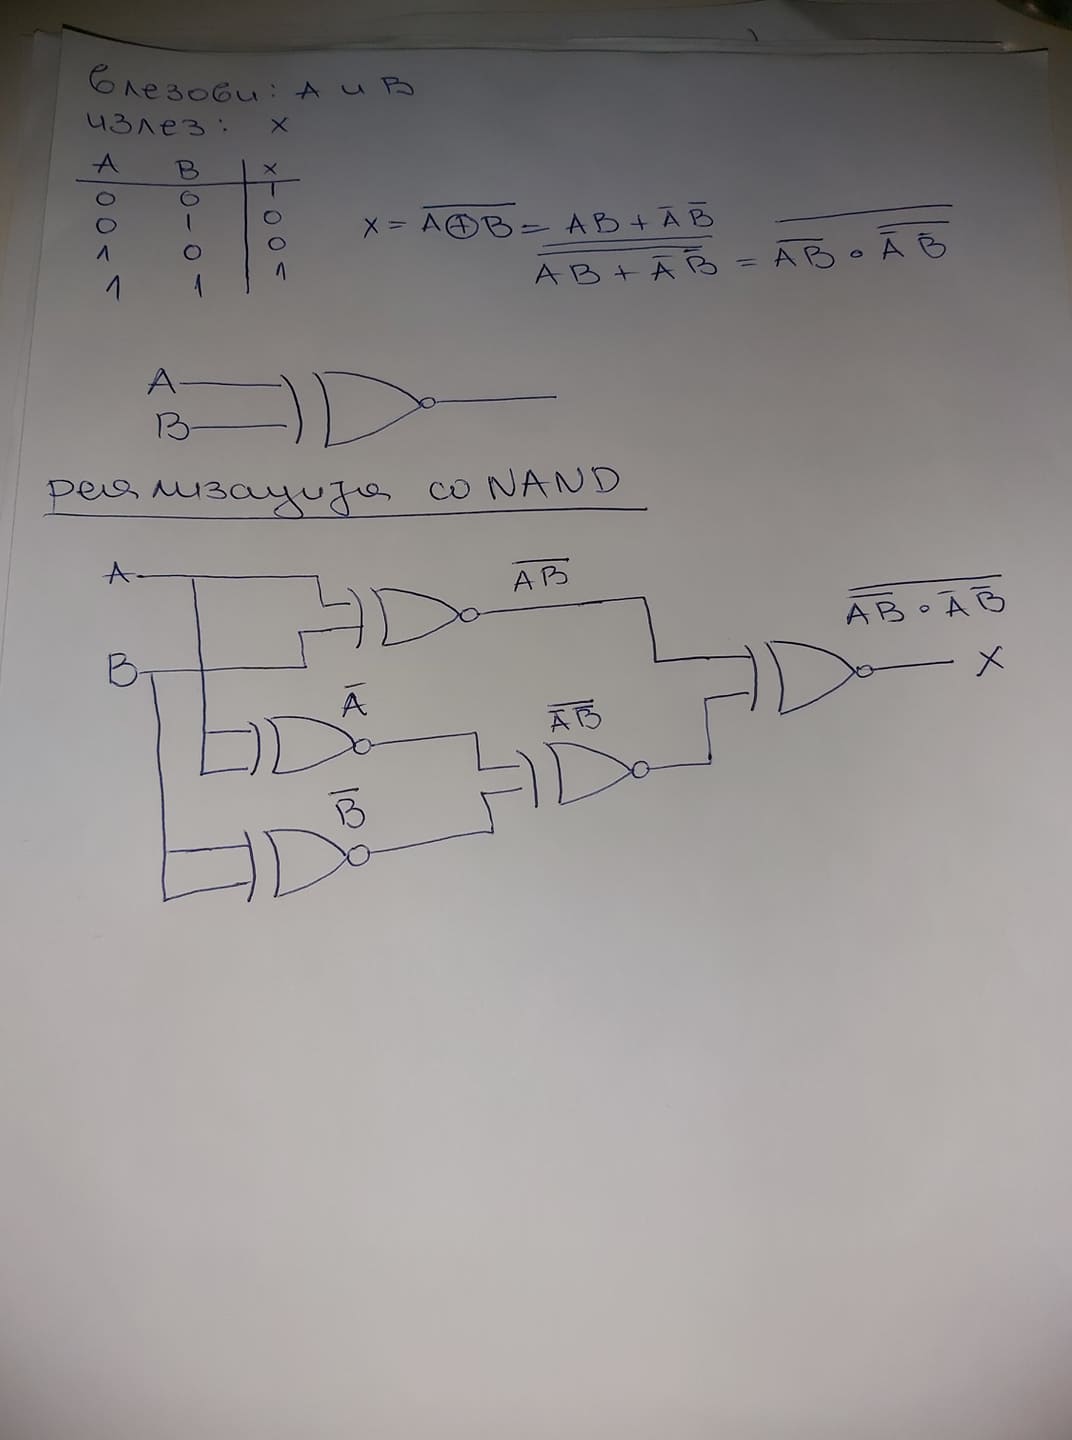 Влезови: A и B
излез: x
A B x
0 0 1
0 1 0
1 0 0
1 1 1
x = \overline{A⊕B} = AB + A̅ B̅
\overline{\overline{AB + A̅ B̅}} = \overline{\overline{AB} ∘ \overline{A̅ B̅}}
A
B
реализација со NAND
A
\overline{AB}
\overline{\overline{AB} ∘ A̅ B̅}
B
X
A̅
\overline{A B̅}
B̅